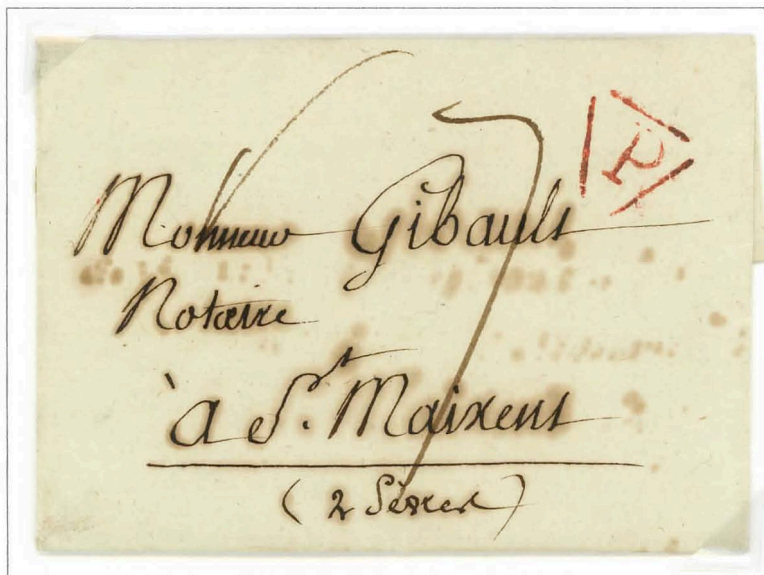 P
Monsieur Gibault
Notaire
à St. Maixent
(2 Sèvres)